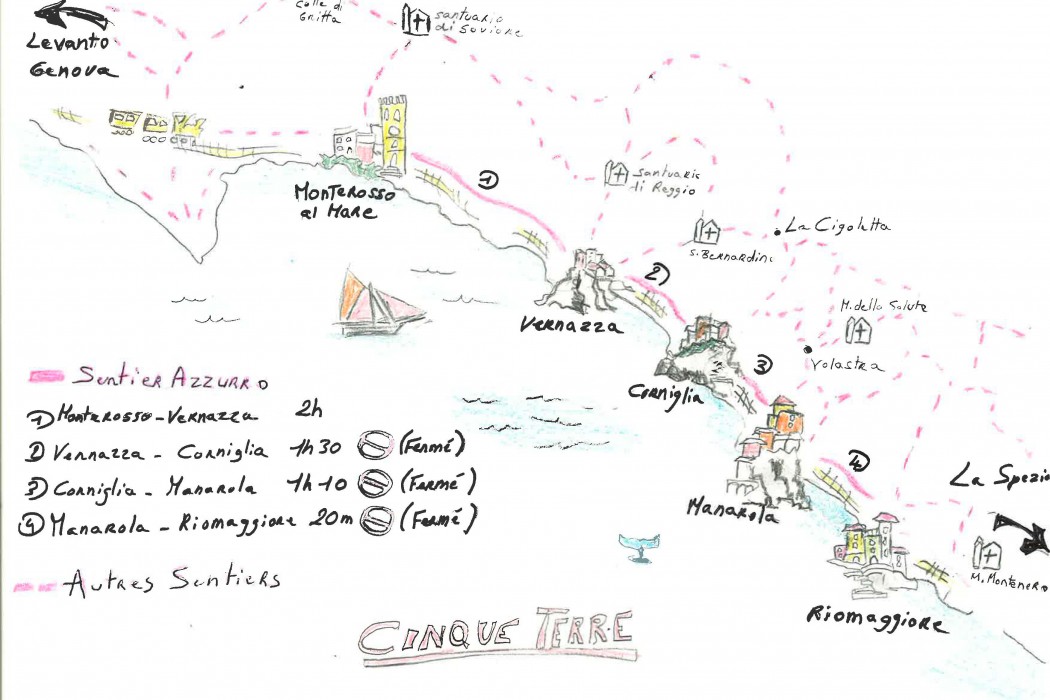 Colle di
Gritta
santuario
di Soviore
Levanto
Genova
Monterosso
al Mare
1
santuario
di Reggio
La Cigoletta
S. Bernardino
2
Vernazza
M. della Salute
Volastra
3
Corniglia
Sentier AZZURRO
1 Monterosso - Vernazza 2h
2 Vernazza - Corniglia 1h30 (Fermé)
3 Corniglia - Manarola 1h10 (Fermé)
4 Manarola - Riomaggiore 20m (Fermé)
4
La Spezia
Manarola
M. Montenero
Autres Sentiers
Riomaggiore
CINQUE TERRE